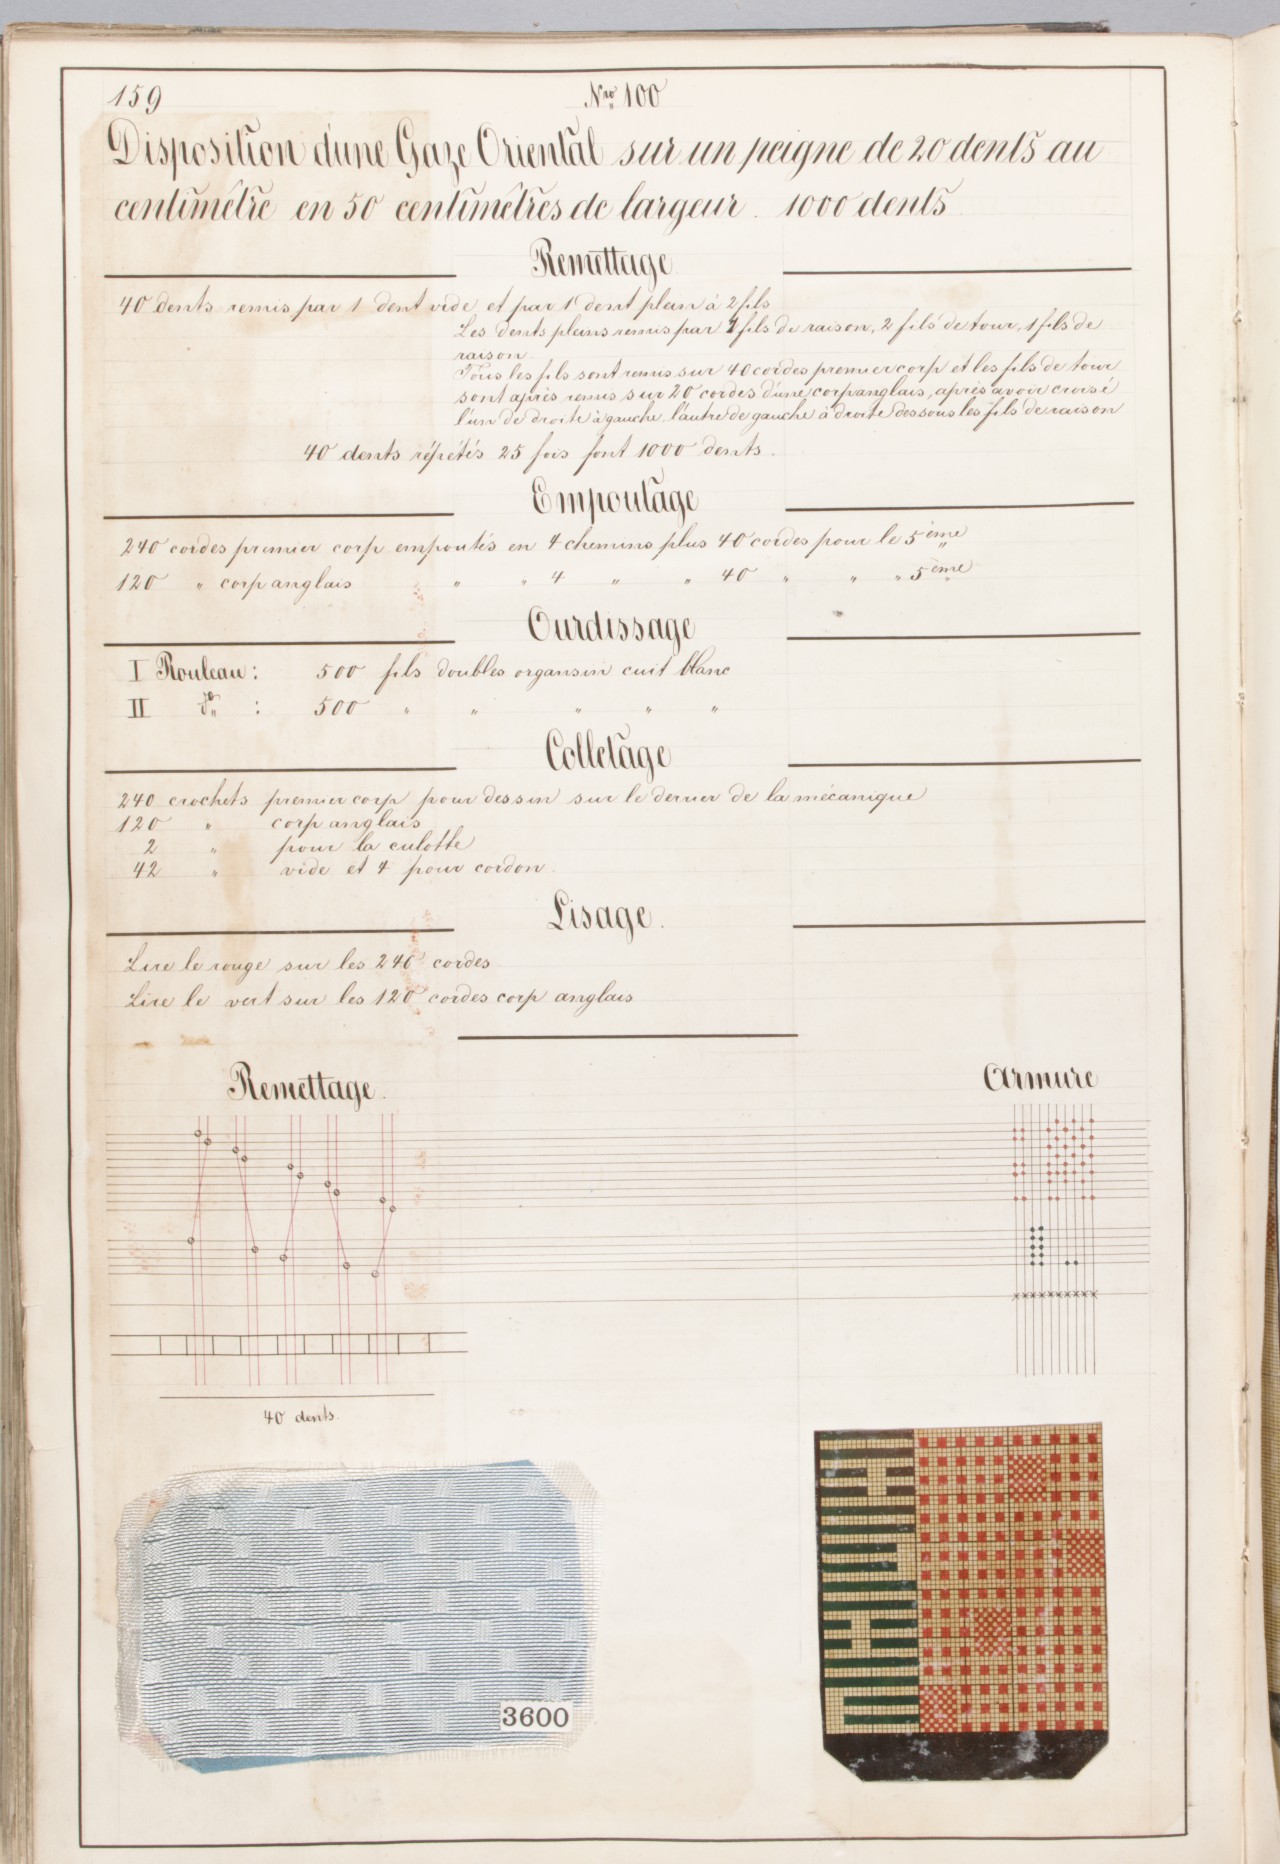 159
Nro 100
Disposition d'une Gaze Oriental sur un peigne de 20 dents au
centimêtre en 50 centimêtres de largeur. 1000 dents
Remettage
40 dents remis par 1 dent vide et par 1 dent plein à 2 fils
Les dents pleins remis par 1 fils de raison, 2 fils de tour, 1 fils de
raison.
Tous les fils sont remis sur 40 cordes premier corp et les fils de tour
sont après remis sur 20 cordes d'une corp anglais, après avoir croisé
l'un de droite à gauche, l'autre de gauche à droite dessous les fils de raison
40 dents répétés 25 fois font 1000 dents.
Empoutage
240 cordes premier corp empoutés en 4 chemins plus 40 cordes pour le 5ème
120 " corp anglais " " 4 " " 40 " " " 5ème
Ourdissage
I Rouleau: 500 fils doubles organsin cuit blanc
II do : 500 " " " " "
Colletage
240 crochets premier corp pour dessin sur le derrier de la mécanique
120 " corp anglais
2 " pour la culotte
42 " vide et 4 pour cordon.
Lisage.
Lire le rouge sur les 240 cordes
Lire le vert sur les 120 cordes corp anglais
Remettage.
Armure
40 dents.
3600